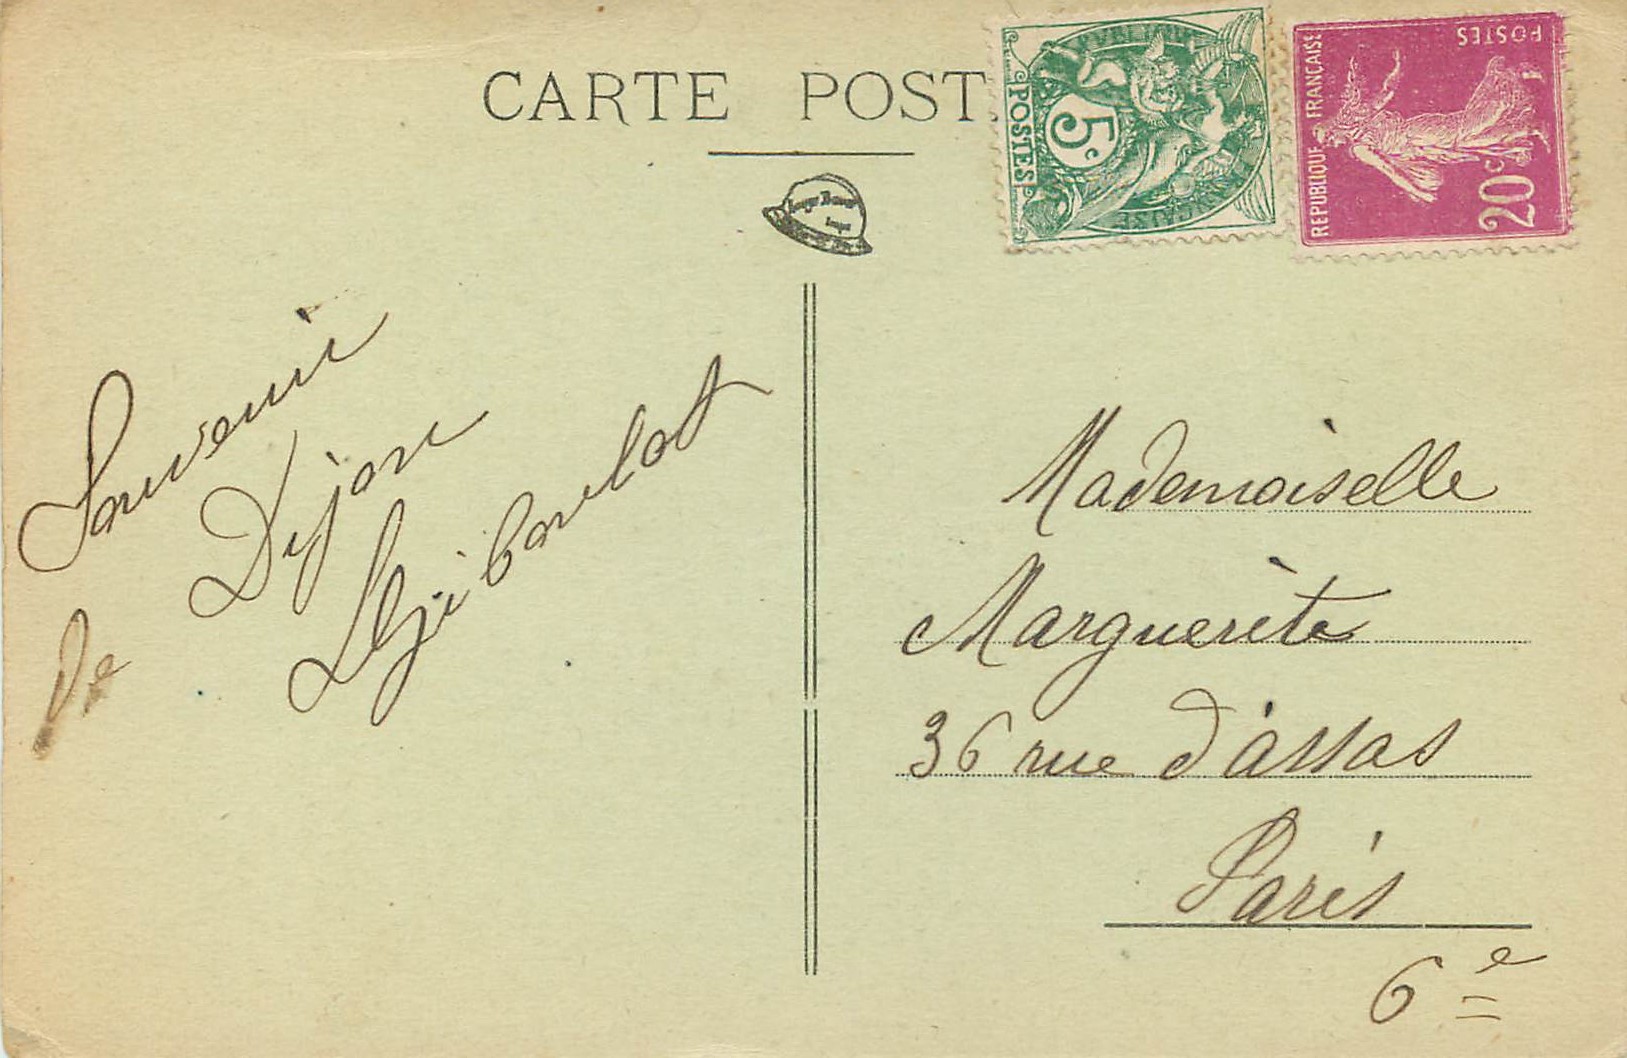 CARTE POST
5c
POSTES
REPUBLIQUE FRANÇAISE
POSTES
20c
Souvenir
De Dijon
Mademoiselle
Marguerite
36 rue d'assas
Paris
6e